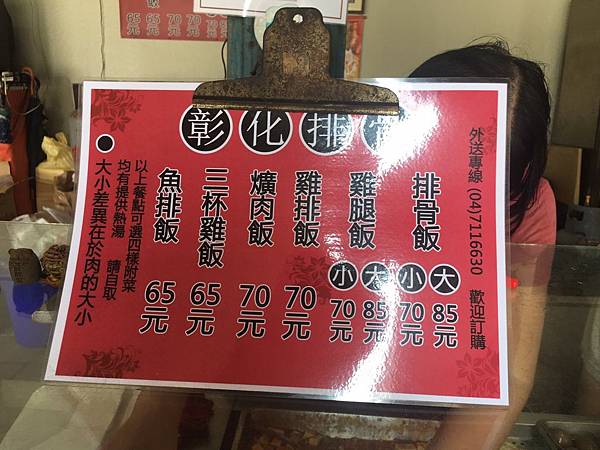 彰化排骨
外送專線 (04)7116630 歡迎訂購
排骨飯
大 85元
小 70元
雞腿飯
大 85元
小 70元
雞排飯
70元
爌肉飯
70元
三杯雞飯
65元
魚排飯
65元
以上餐點可選四樣附菜
均有提供熱湯 請自取
●大小差異在於肉的大小